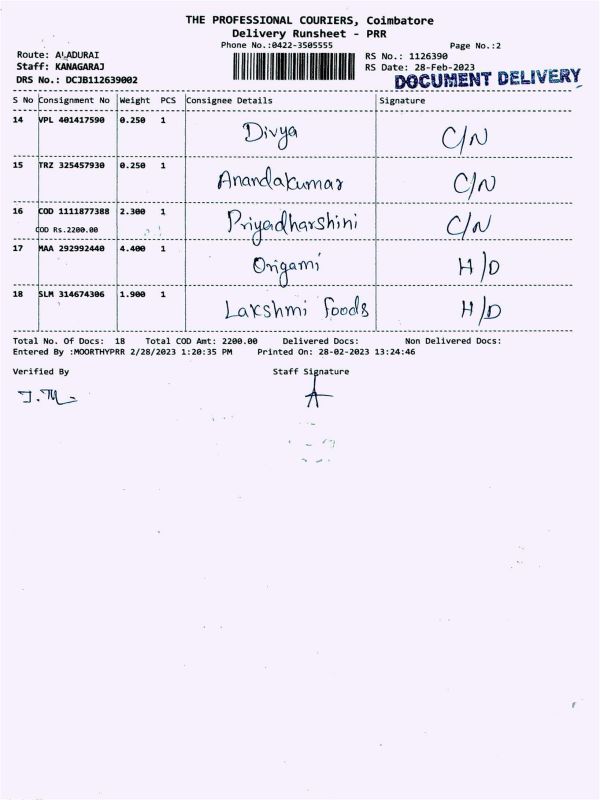 THE PROFESSIONAL COURIERS, Coimbatore
Delivery Runsheet - PRR
Phone No.:0422-3505555 Page No.:2
Route: ALADURAI RS No.: 1126390
Staff: KANAGARAJ RS Date: 28-Feb-2023
DRS No.: DCJB112639002 DOCUMENT DELIVERY
S No Consignment No Weight PCS Consignee Details Signature
14 VPL 401417590 0.250 1 Divya C/N
15 TRZ 325457930 0.250 1 Anandakumar C/N
16 COD 1111877388 2.300 1 Priyadharshini C/N
COD Rs.2200.00
17 MAA 292992440 4.400 1 Origami H/D
18 SLM 314674306 1.900 1 Lakshmi Foods H/D
Total No. Of Docs: 18 Total COD Amt: 2200.00 Delivered Docs: Non Delivered Docs:
Entered By :MOORTHYPRR 2/28/2023 1:20:35 PM Printed On: 28-02-2023 13:24:46
Verified By Staff Signature